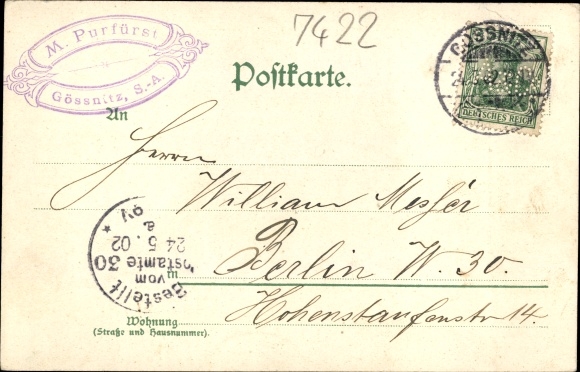 M. Purfürst
Gössnitz, S.-A.
7422
Postkarte.
GÖSSNITZ
DEUTSCHES REICH
An
Herrn
William Messer
in
Berlin W. 30.
Hohenstaufenstr 14.
Bestellt
vom
Postamte 30
24 5. 02
Wohnung
(Straße und Hausnummer).